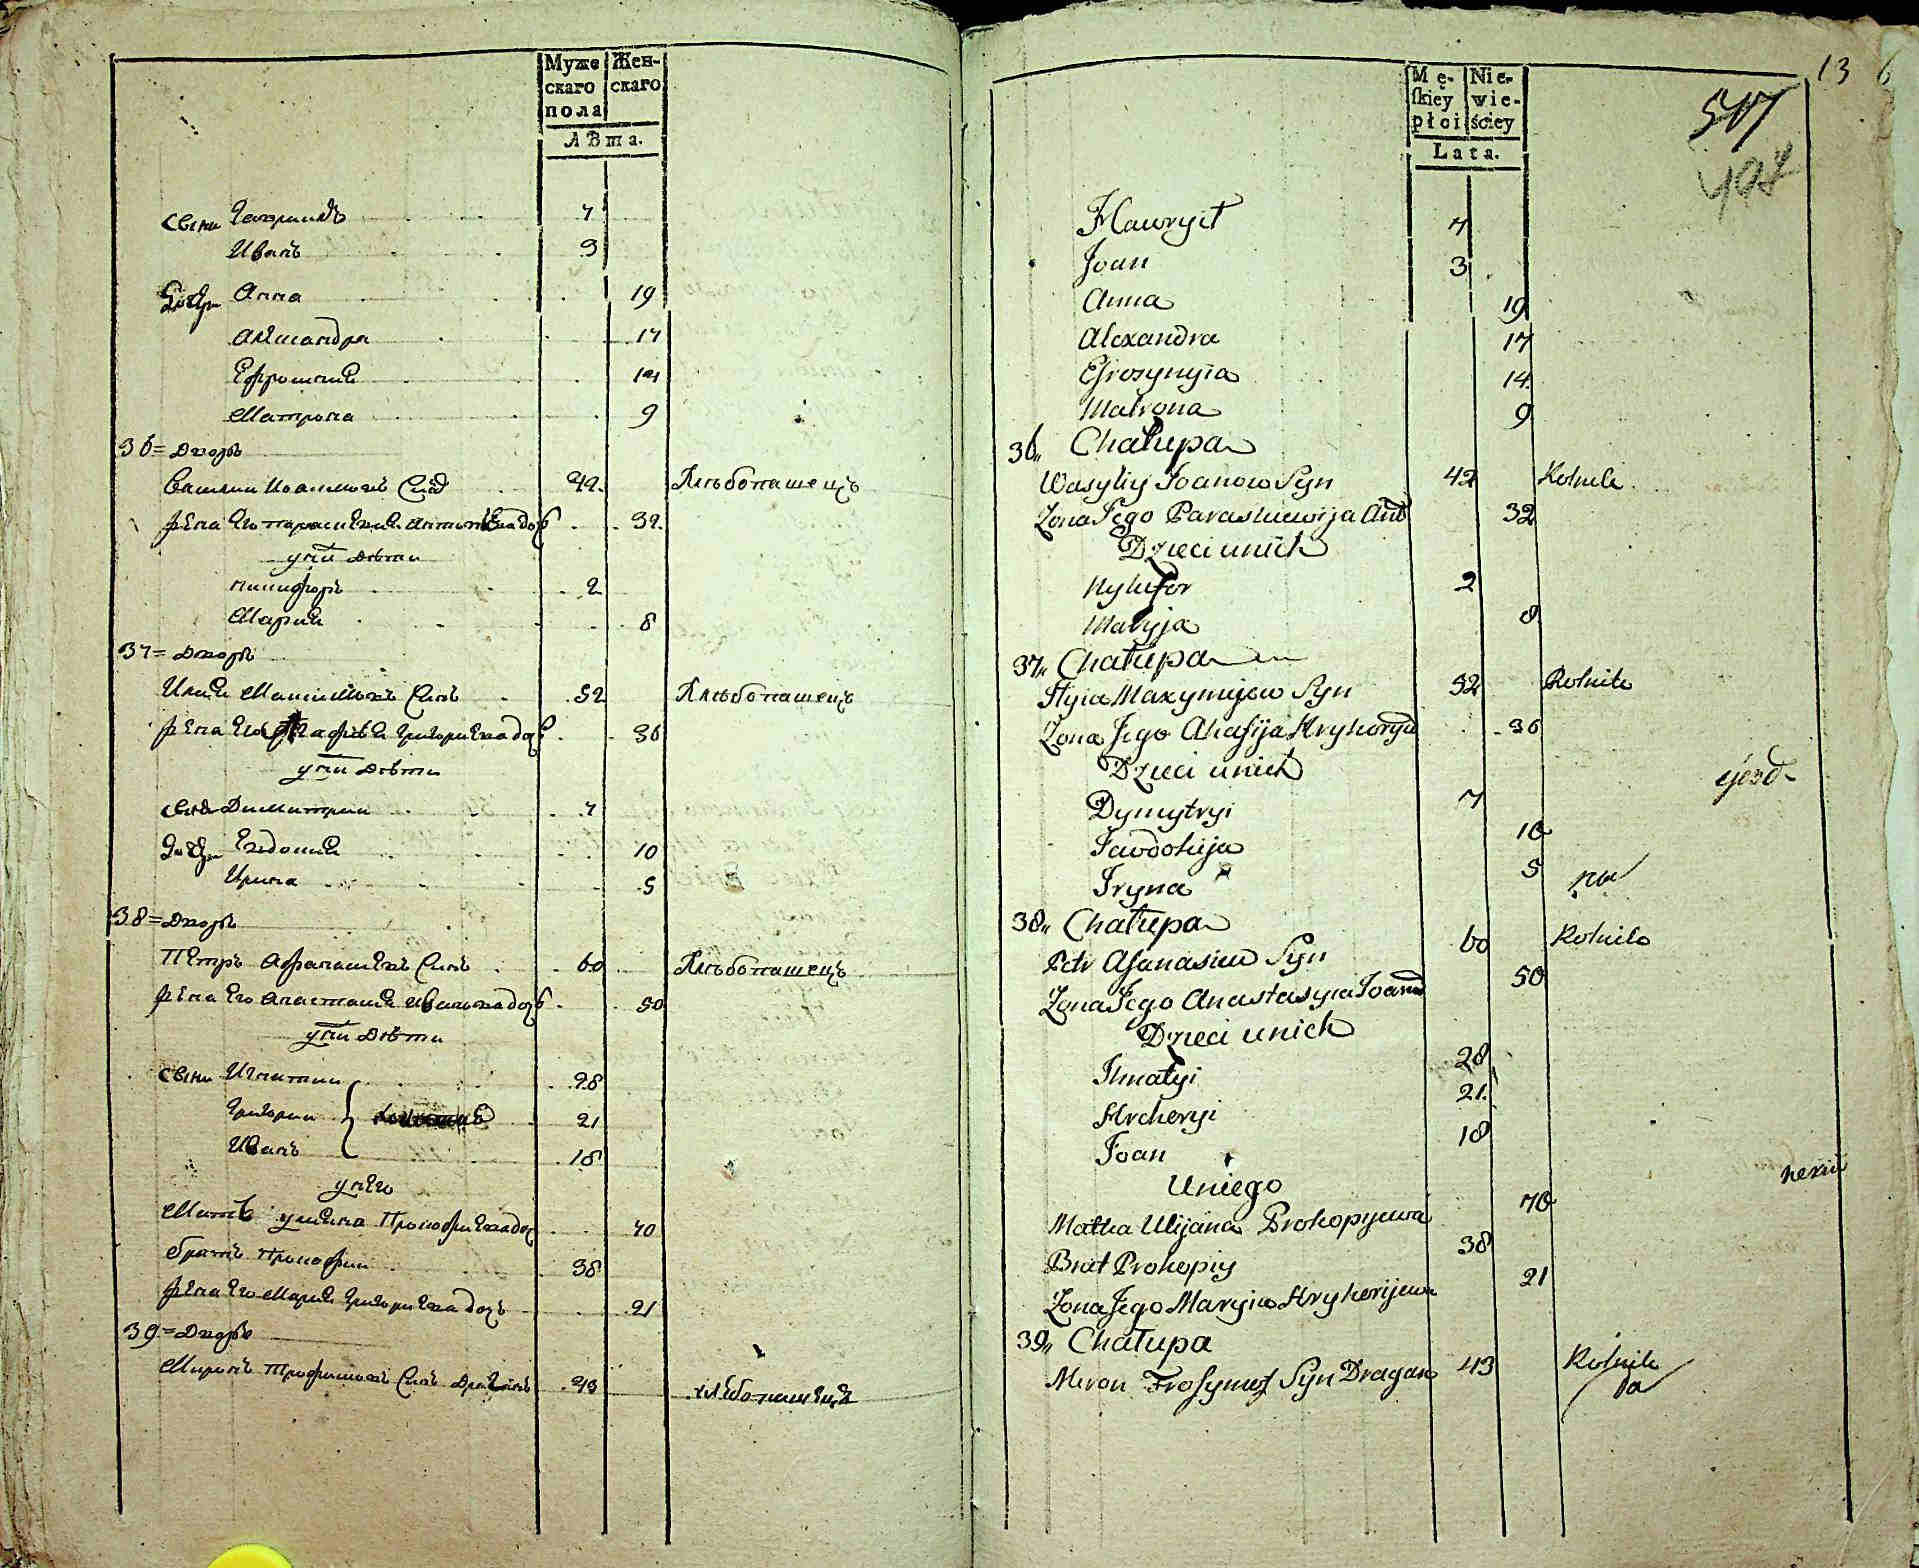 Муже Жен-
скаго скаго
пола
лѣта.
сыны Гавриилъ 7
Иванъ 3
дочери Анна 19
Александра 17
Ефросинія 14
Матрона 9
36 = Дворъ
Василий Иоанновъ Сынъ 42 Хлебопашецъ
жена его Параскевия 32
у нихъ дѣти
Никифоръ 2
Мария 8
37 = Дворъ
Илия Максимовъ Сынъ 52 Хлебопашецъ
жена его Агафия Григориева дочь 36
у нихъ дѣти
сынъ Димитрий 7
дочери Евдокия 10
Ирина 5
38 = Дворъ
Петръ Афанасиевъ Сынъ 60 Хлебопашецъ
жена его Анастасия Иванова дочь 50
у нихъ дѣти
сыны Игнатий 28
Григорий 21
Иванъ 18
у него
Мать Улиана Прокофиева дочь 70
братъ Прокофий 38
жена его Мария Григориева дочь 21
39 = Дворъ
Миронъ Трофимовъ Сынъ Драганъ 43 хлѣбопашецъ
13 6
Mę- Nie-
skiey wie-
płci ściey
Lata.
517
Hawryił 7
Joan 3
Anna 19
Alexandra 17
Efrosynyia 14
Matrona 9
36 „ Chałupa
Wasyliy Joanow Syn 42 Rolnik
Zona Jego Paraskiewija Ant 32
Dzieci u nich
Nykifor 2
Maryja 8
37 „ Chałupa
Ilyia Maxymijow Syn 52 Rolnik
Zona Jego Ahafija Hryhoryi 36
Dzieci u nich
Dymytryi 7
Jawdokija 10
Iryna 5
38 „ Chałupa
Petr Afanasiew Syn 60 Rolnik
Zona Jego Anastasyia Joano 50
Dzieci u nich
Ihnatyi 28
Hreheryi 21
Joan 18
U niego
Matka Ulijana Prokopijewa 70
Brat Prokopiy 38
Zona Jego Maryia Hryhorijewa 21
39 „ Chałupa
Miron Trofymow Syn Dragan 43 Rolnik